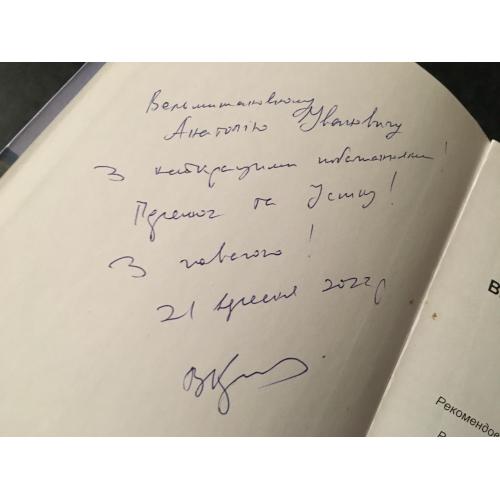 Вельмишановному
Анатолію Івановичу
З найкращими побажаннями!
Перемог та Успіху!
З повагою!
21 вересня 2022р
В
Рекомендов